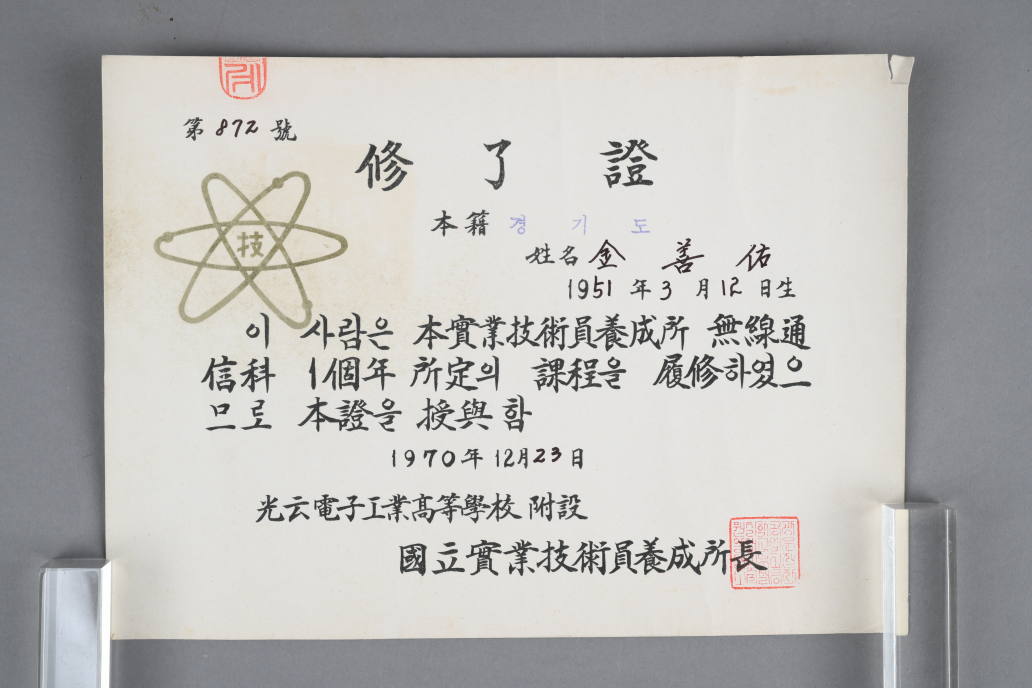 第 872 號
修了證
技
本籍 경기도
姓名 金善佑
1951年3月12日生
이 사람은 本實業技術員養成所 無線通
信科 1個年 所定의 課程을 履修하였으
므로 本證을 授與함
1970年 12月23日
光云電子工業高等學校 附設
國立實業技術員養成所長